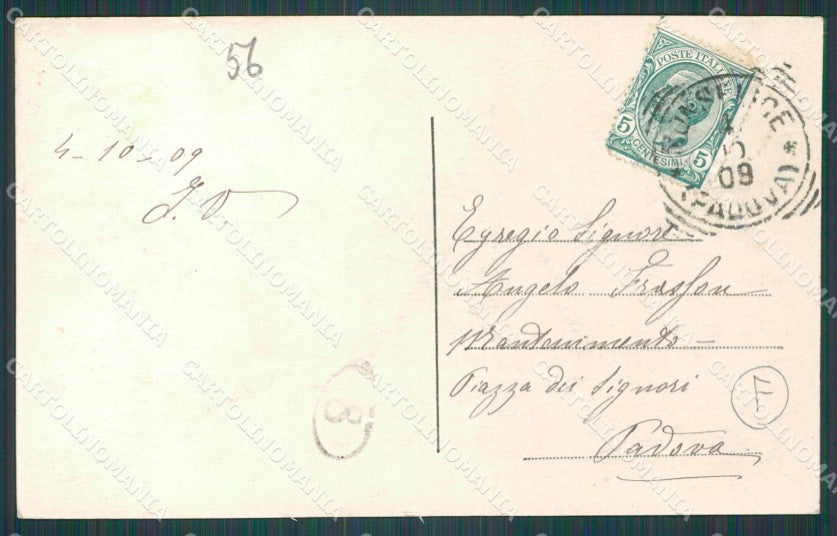 56
4-10-09
POSTE ITAL
5 CENTESIMI 5
10
09
(PADOVA)
Egregio Signore
Angelo
Piazza dei Signori
Padova
8
CARTOLINOMANIA